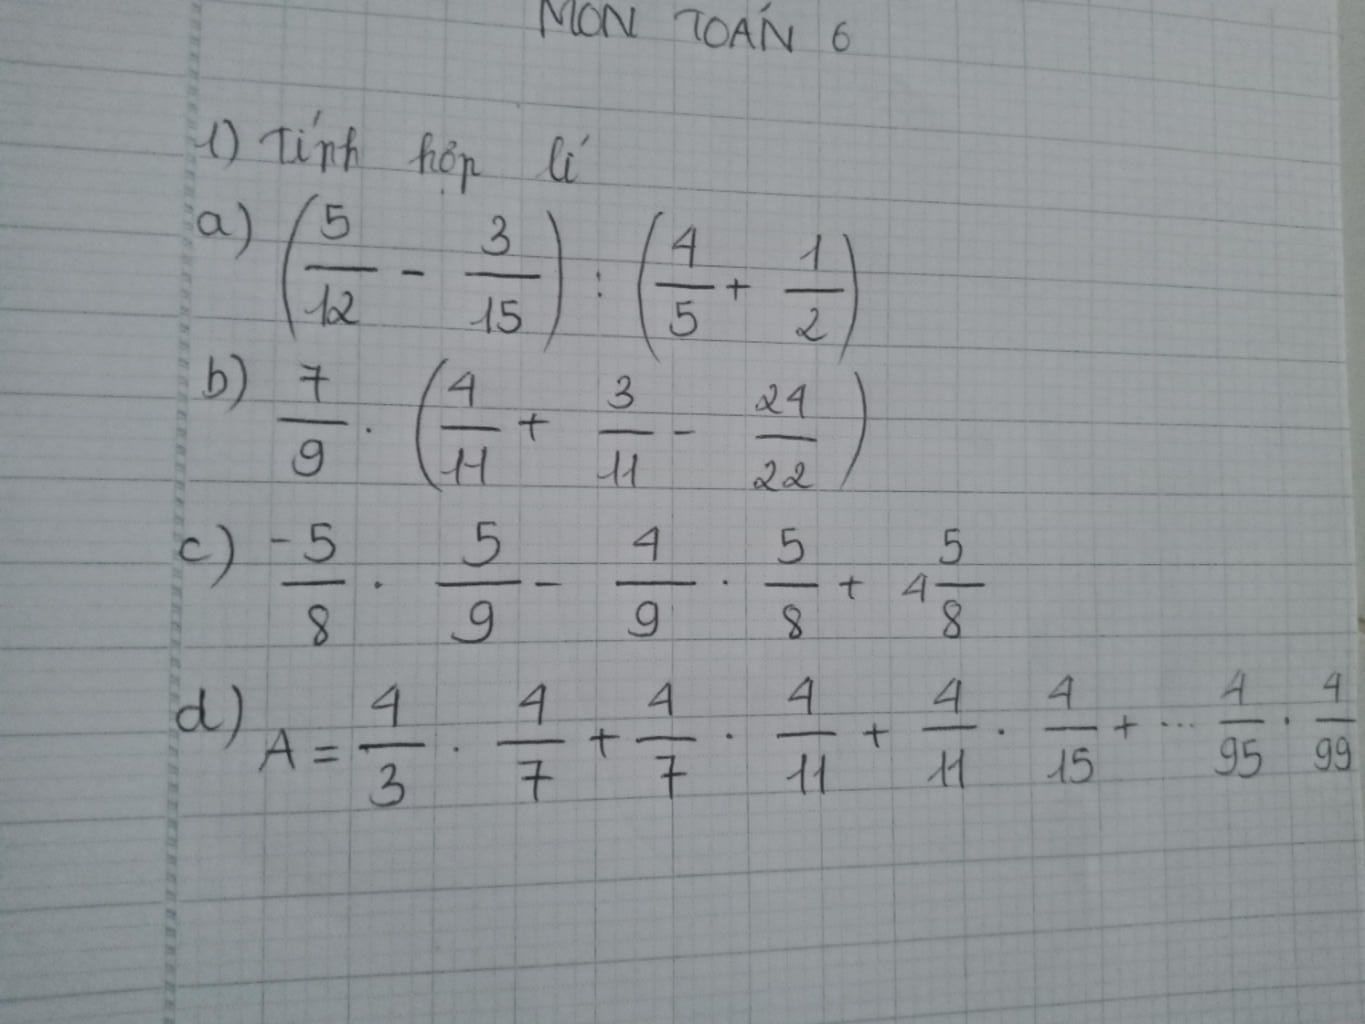 MÔN TOÁN 6
1) Tính hợp lí
a) (5/12 - 3/15) : (4/5 + 1/2)
b) 7/9 . (4/11 + 3/11 - 24/22)
c) -5/8 . 5/9 - 4/9 . 5/8 + 4 5/8
d) A = 4/3 . 4/7 + 4/7 . 4/11 + 4/11 . 4/15 + ... 4/95 . 4/99